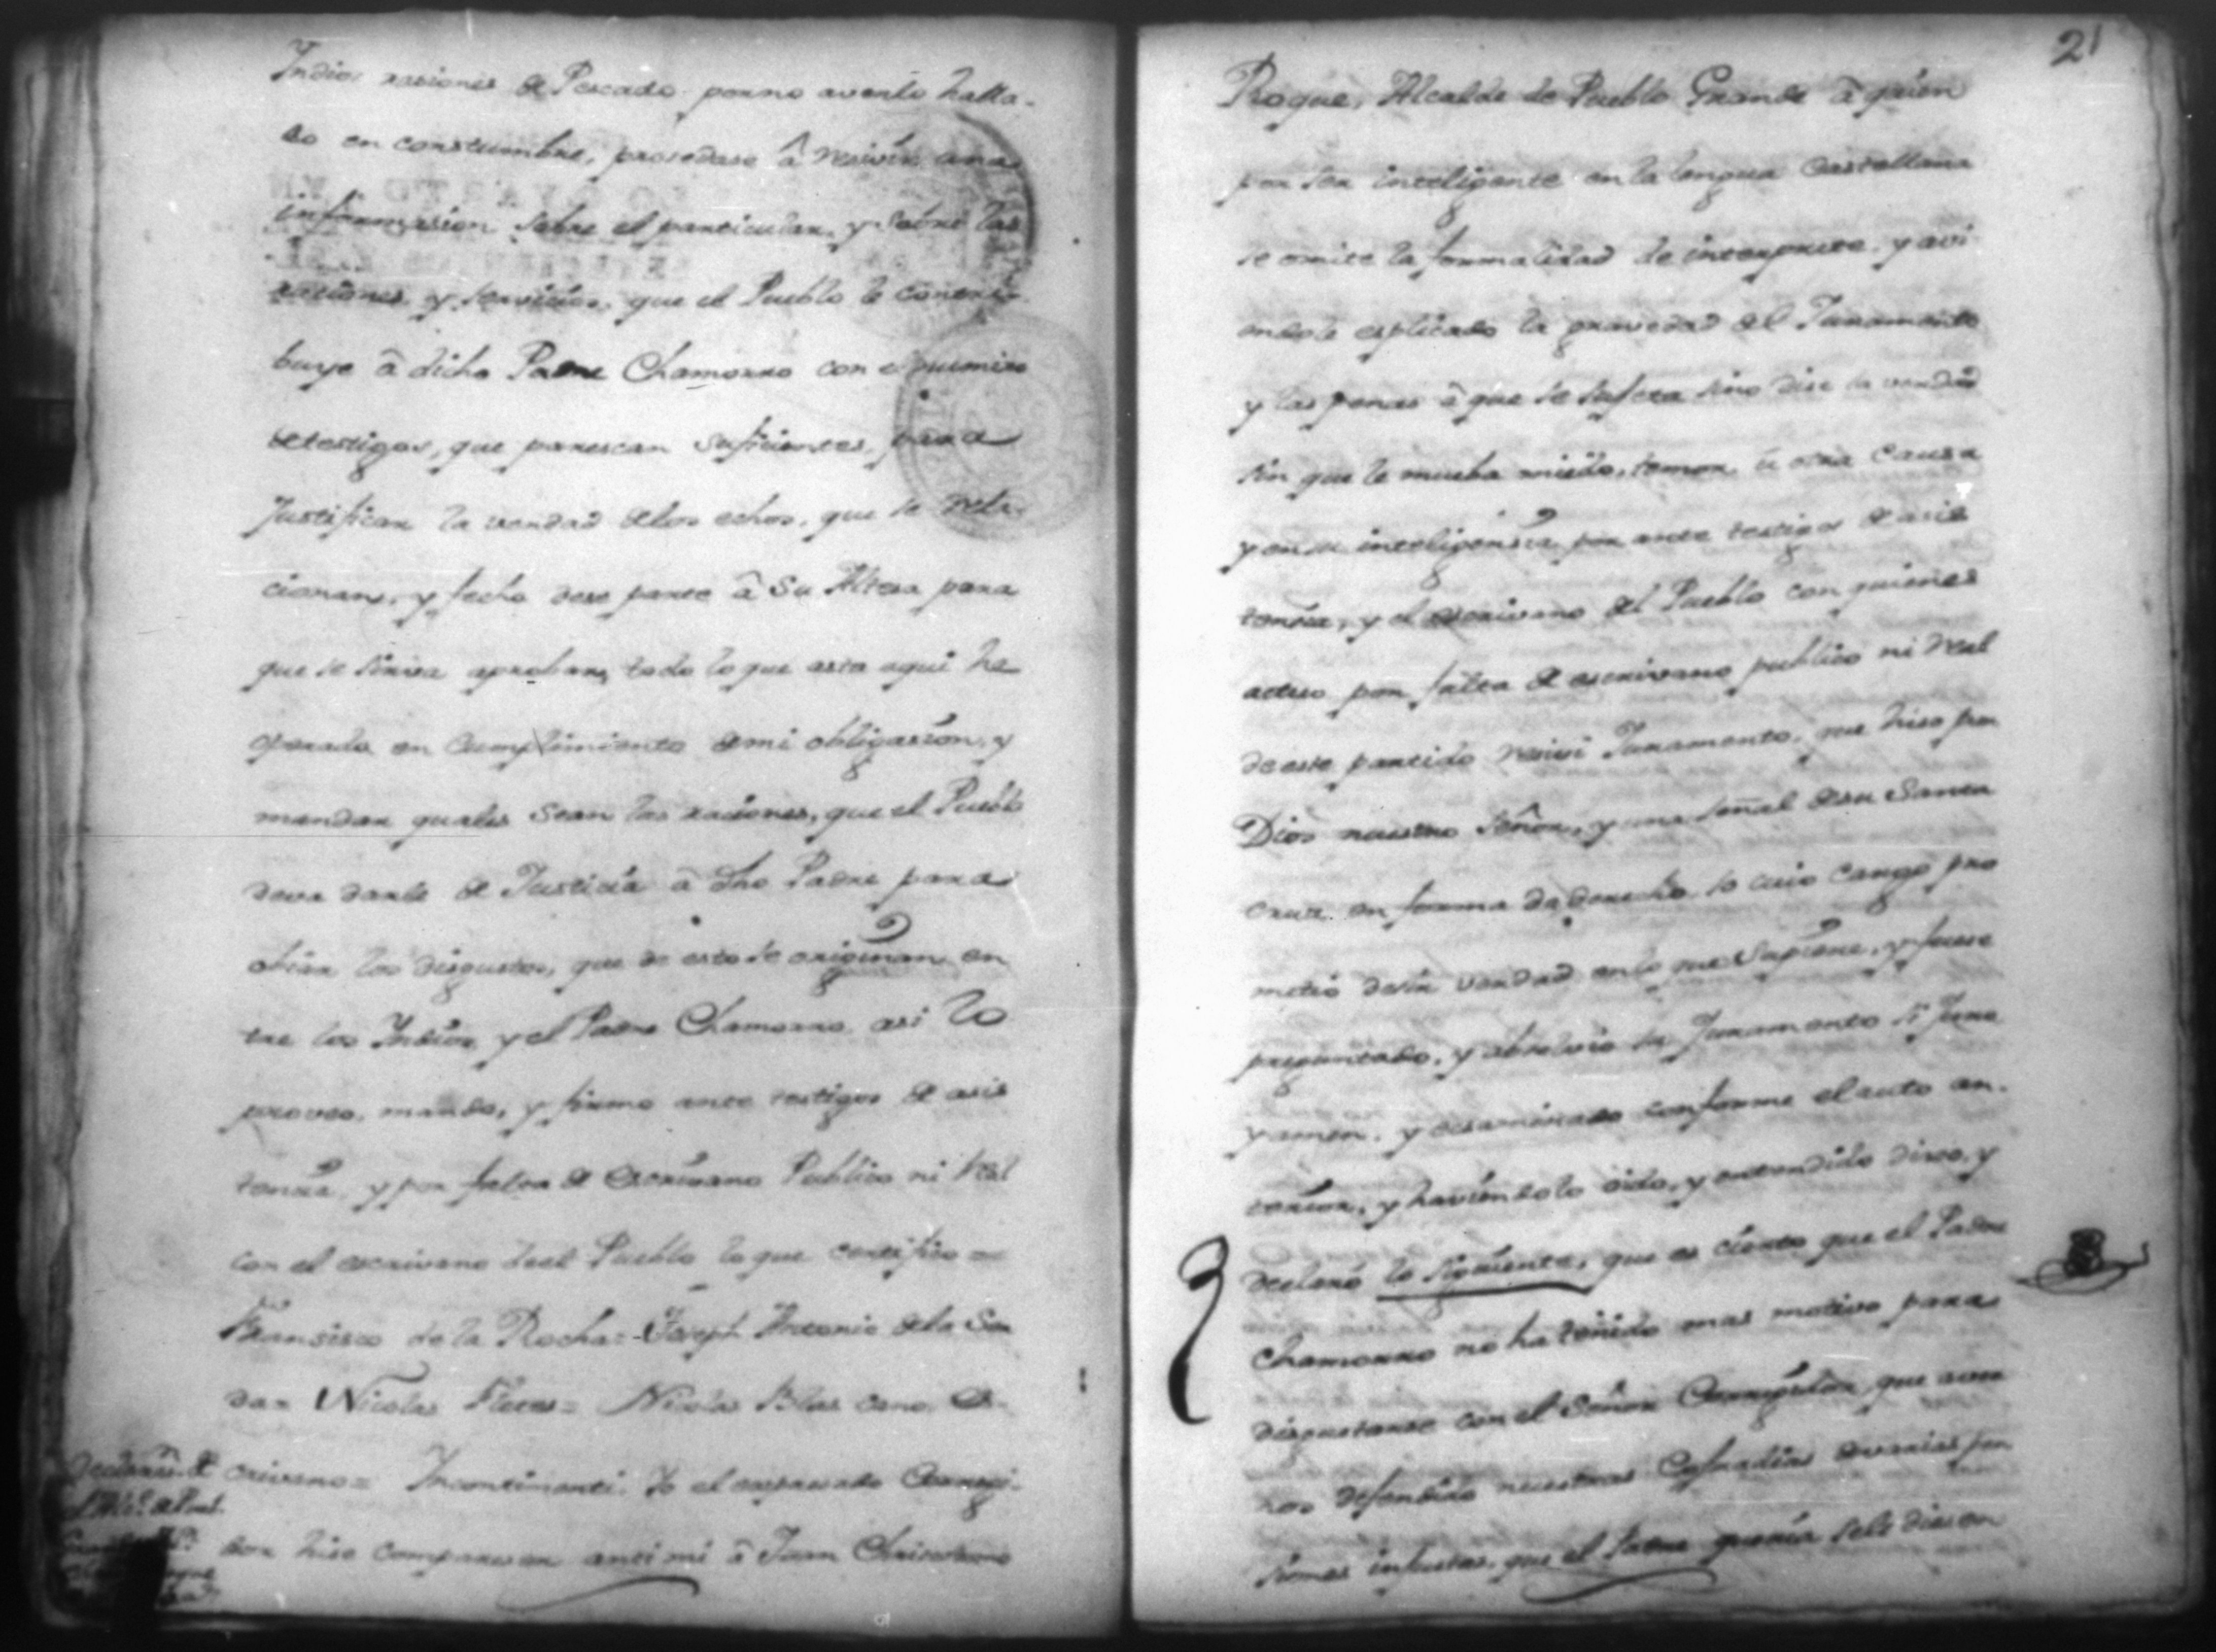 Indios rasiones de Pescado por no averlo halla-
do en constumbre, prosedase â resivir una
informasion sobre el particular, y sobre las
rasiones y servisios, que el Pueblo le contri-
buye â dicho Padre Chamorro con el numero
de testigos, que parescan suficientes, para
Justificar la verdad de los echos, que se rela-
cionan, y fecho dese parte â Su Altesa para
que se sirva aprobar, todo lo que asta aqui he
operado en Cumplimiento de mi obligasion, y
mandar quales sean las raciones, que el Pueblo
deva darle de Justicia â dho Padre para
obiar los disgustos, que de esto se originan en
tre los Indios, y el Padre Chamorro asi lo
proveo, mando, y firmo ante testigos de asis
tencia, y por falta de Escrivano Publico ni Real
con el escrivano deel Pueblo lo que certifico =
Fransisco de la Rocha = Joseph Antonio de la Sen
da = Nicolas Flores = Nicolas Blas cano Es-
crivano = Incontinenti Yo el expresado Corregi-
dor hise compareser ante mi â Juan Chrisostomo
Declaran.n de
21
Roque, Alcalde de Pueblo Grande â quien
por ser inteligente en la lengua Castellana
se omite la formalidad de interprete, y avi
endole esplicado la gravedad del Juramento
y las penas â que se sujeta sino dise la verdad
sin que le mueba miedo, temor, u otra Causa
y en su inteligensia por ante testigos de asis
tencia, y el escrivano del Pueblo con quienes
actuo por falta de escrivano publico ni Real
de este partido resivi Juramento, que hiso por
Dios nuestro Señor, y una señal de su Santa
Cruz en forma de derecho so cuio cargo pro
metió desir verdad en lo que Supiere, y fuere
preguntado, y absolvio su Juramento si Juro
y amen, y examinado conforme el auto an-
terior, y haviendolo oido, y entendido dixo, y
declaró lo siguiente, que es cierto que el Padre
Chamorro no ha tenido mas motivo para
disgustarse con el Señor Corregidor, que aver
nos defendido nuestras Cofradias de varias pen
siones injustas, que el Padre queria sele diesen